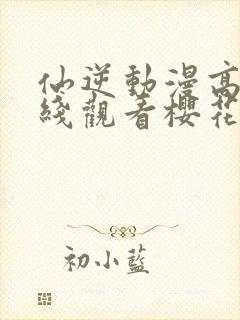 仙逆動漫高
綫觀看櫻花
初小藍